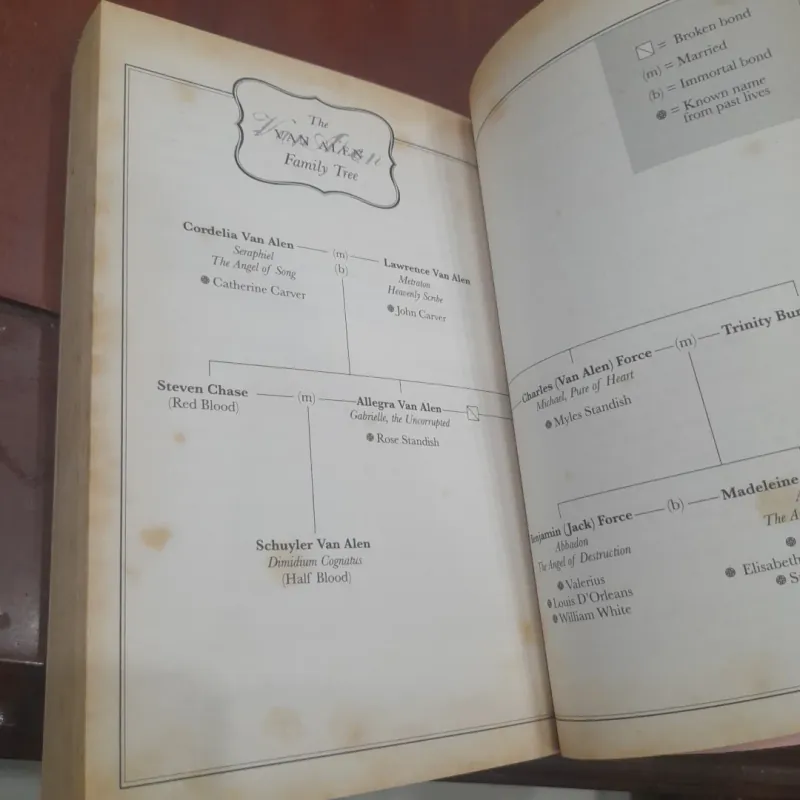 The
VAN ALEN
Family Tree
Cordelia Van Alen
(m)
Seraphiel
The Angel of Song
(b)
Catherine Carver
Lawrence Van Alen
Metraton
Heavenly Scribe
John Carver
Steven Chase
(Red Blood)
(m)
Allegra Van Alen
Gabrielle, the Uncorrupted
Rose Standish
Schuyler Van Alen
Dimidium Cognatus
(Half Blood)
= Broken bond
(m) = Married
(b) = Immortal bond
= Known name
from past lives
Charles (Van Alen) Force
(m)
Trinity
Michael, Pure of Heart
Myles Standish
(Jack) Force
(b)
Madeleine
Abbadon
The Angel of Destruction
The
Valerius
Louis D'Orleans
William White
Elisabeth